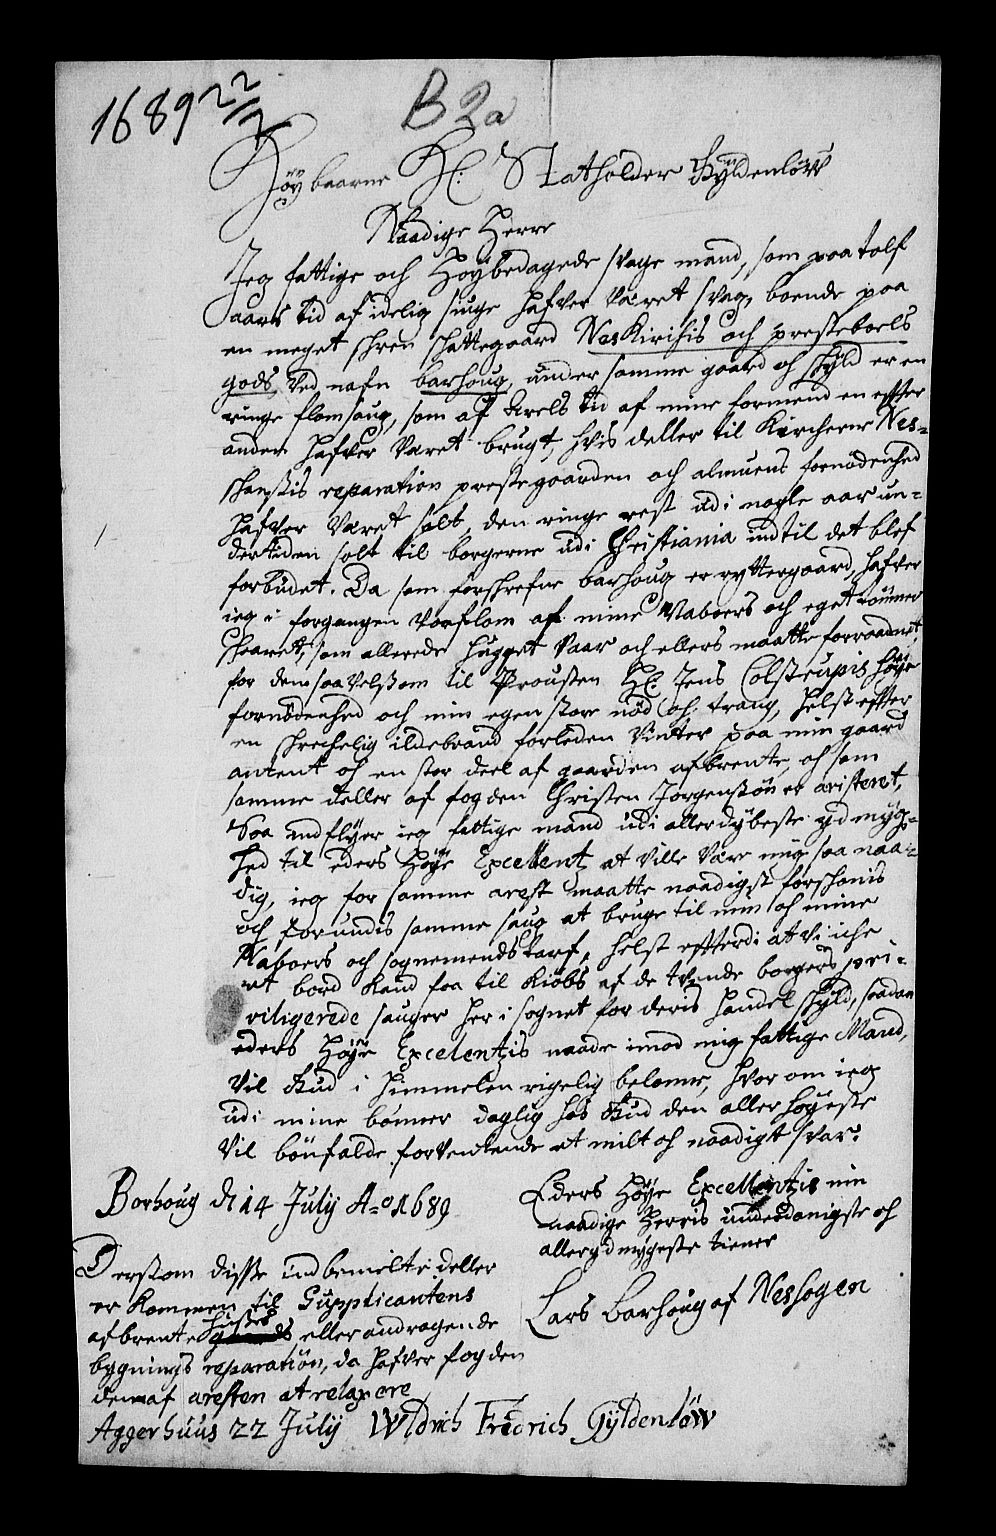 1689 22/7
B 2a
Höybaarne H: Statholder Gyldenlöw
Naadige Herre
Jeg fattige och Höybedagede svage mand, som paa tolf
aars tid af idelig siuge hafver väret svag, boende paa
en meget schren schattegaard Nes Kirchis och presteboels
gods ved nafn barhoug, under samme gaard oh schyld er en
ringe flomsaug, som af Arels tid af mine formend en effter
anden hafver väret brugt, hvis deller til Kircherne Nes-
schansis reparation prestegaarden och almuens fornödenhed
hafver väret solt, den ringe rest udi nogle aar un-
dertiden solt til borgerne udi Christiania indtil det blef
forbudet. Da som forschrefne barhoug er ryttergaard, hafver
ieg i forgangen vorflom af mine Naboers och eget tömmer
schaaret, som allerede hugget vaar och ellers maatte forraadnet
for dem saavelsom til Prousten Hr. Jens Colstrupis höye
fornödenhed och min egen store nöd oh trang, helst effter
en schrechelig ildebrand forleden vinter paa min gaard
antent oh en stor deel af gaarden afbrente, oh som
samme deller af fogden Christen Jörgensön er aristeret,
Saa indflyer ieg fattige mand udi allerdybeste ydmyg-
hed til eders Höye Excellentz at ville väre mig saa naa-
dig, ieg for samme arest maatte naadigst forschonis
och forundis samme saug at bruge til min oh mine
Naboers och sognemends tarf, helst effterdi at vi iche
et bord kand faa til kiöbs af de tvende borgers pri-
viligerede sauger her i sognet for deris handel schyld, saadan
eders Höye Excelentzis naade imod mig fattige Mand,
vil Gud i himmelen rigelig belönne, hvor om ieg
udi mine bönner daglig hos Gud den allerhögeste
vil bönfalde forventende et milt oh naadigt svar.
Borhoug d: 14 July Ao 1689
Eders Höye Excellentzis min
naadige Herris underdanigste oh
allerydmygeste tiener
Lars Barhoug af Nessogen
Dersom disse indbemelte deller
er kommen til Supplicantens
afbrente huses eller andragende
bygnings reparation, da hafver fogden
dem af aresten at relaxere
Aggerhuus 22 July Wldrich Fredrich Gyldenlöw